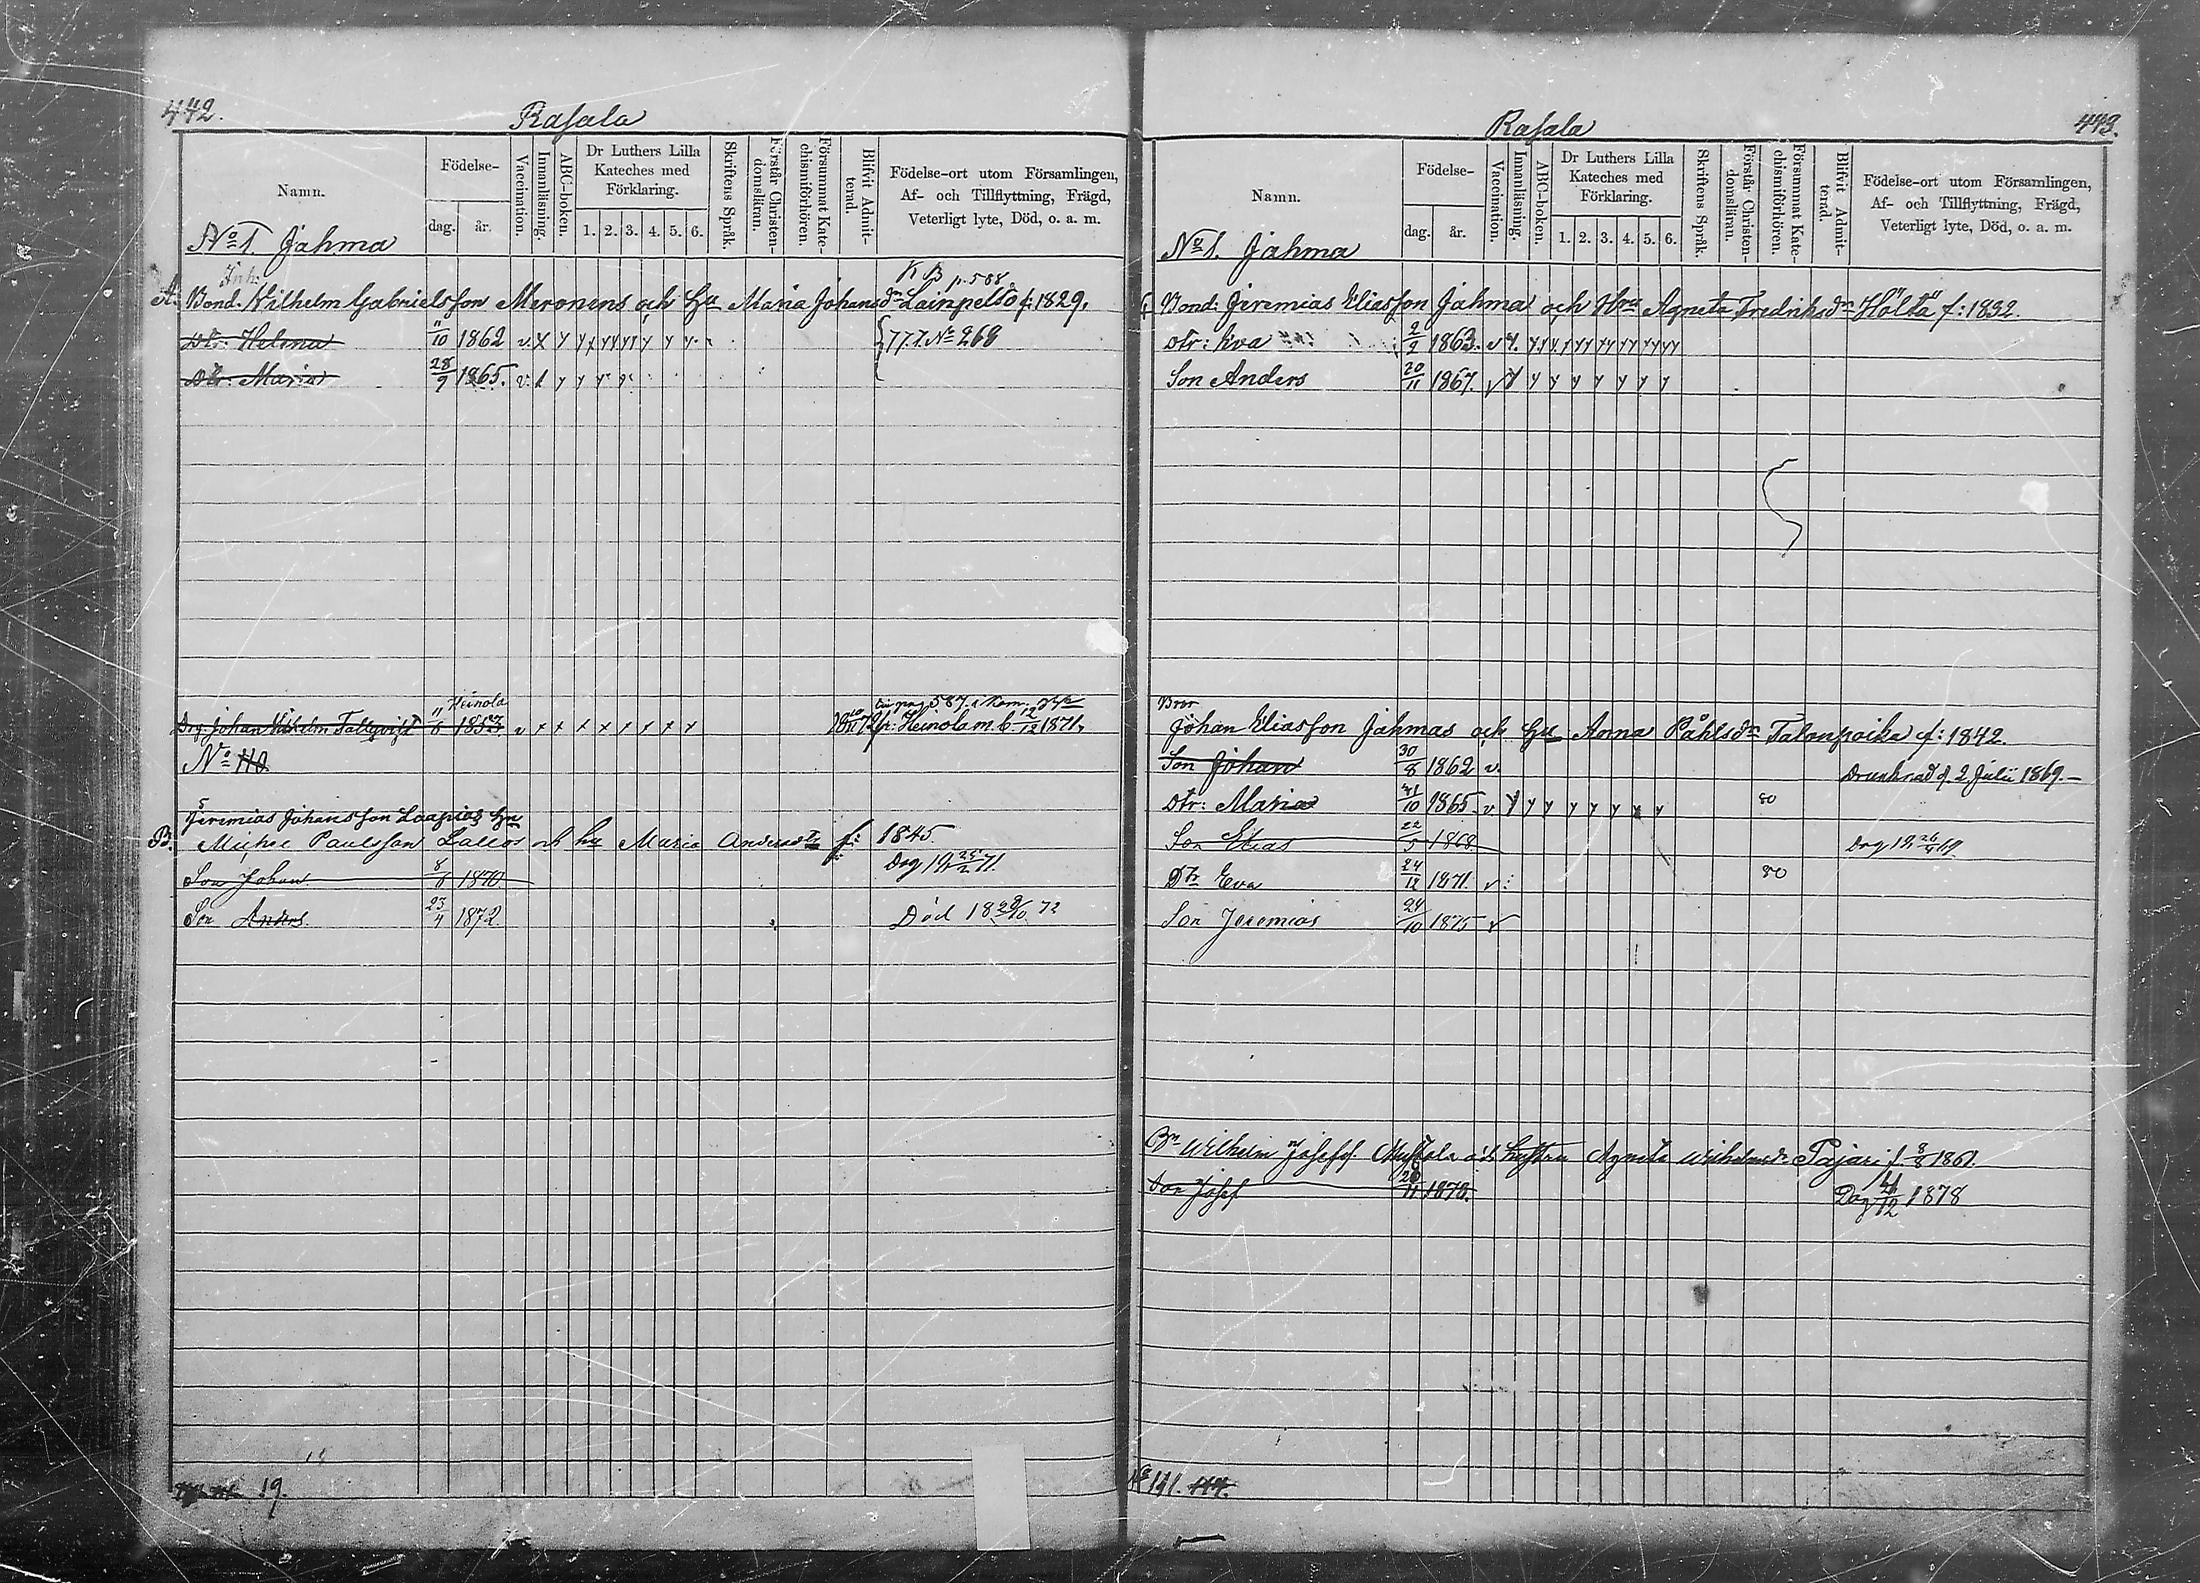 442.
Rasala
Namn.
Födelse-
dag.
år.
Vaccination.
Innanläsning.
ABC-boken.
Dr Luthers Lilla
Kateches med
Förklaring.
1. 2. 3. 4. 5. 6.
Skriftens Språk.
Förstår Christen-
domsläran.
Försummat Kate-
chismiförhören.
Blifvit Admit-
terad.
Födelse-ort utom Församlingen,
Af- och Tillflyttning, Frägd,
Veterligt lyte, Död, o. a. m.
No 1. Jahma
Inh:
K B p. 588.
A. Bond. Wilhelm Gabrielsson Meronens och Hu Maria Johansdr Lainpelto f: 1829.
Dtr: Helena 11/10 1862 777 No 268
Dtr: Maria 28/9 1865.
Heinola
Drg. Johan Wilhelm Tallqvist 11/6 1853 fr. Heinola m. b. 12/12 1871.
No 110
Jeremias Johansson Laapias Hu
B. Michel Paulsson Lallos och hu Maria Andersdr f: 1845
Son Johan 8/8 1870 Dog 19 25/2 71.
Son Anders. 23/4 1872. Död 18 29/10 72
19.
443.
Rasala
Namn.
Födelse-
dag.
år.
Vaccination.
Innanläsning.
ABC-boken.
Dr Luthers Lilla
Kateches med
Förklaring.
1. 2. 3. 4. 5. 6.
Skriftens Språk.
Förstår Christen-
domsläran.
Försummat Kate-
chismiförhören.
Blifvit Admit-
terad.
Födelse-ort utom Församlingen,
Af- och Tillflyttning, Frägd,
Veterligt lyte, Död, o. a. m.
No 1. Jahma
Bond: Jeremias Eliasson Jahma och Hru Agneta Fredriksdr Hölttä f: 1832.
Dtr: Eva 2/2 1863.
Son Anders 20/11 1867.
Bror
Johan Eliasson Jahmas och Hu Anna Påhlsdr Talonpoika f: 1842.
Son Johan 30/8 1862 v. Drunknad d. 2 Julii 1869.-
Dtr: Maria 21/10 1865 80
Son Elias 22/5 1868. Dog 19 26/4 69
Dtr Eva 24/12 1871. 80
Son Jeremias 24/10 1875
Bn Wilhelm Josefs. Mustola och hustru Agneta Wilhelmsdr Pajari f. 8/8 1861.
Son Josef 26/11 1878. Dog 4/12 1878
No 111.